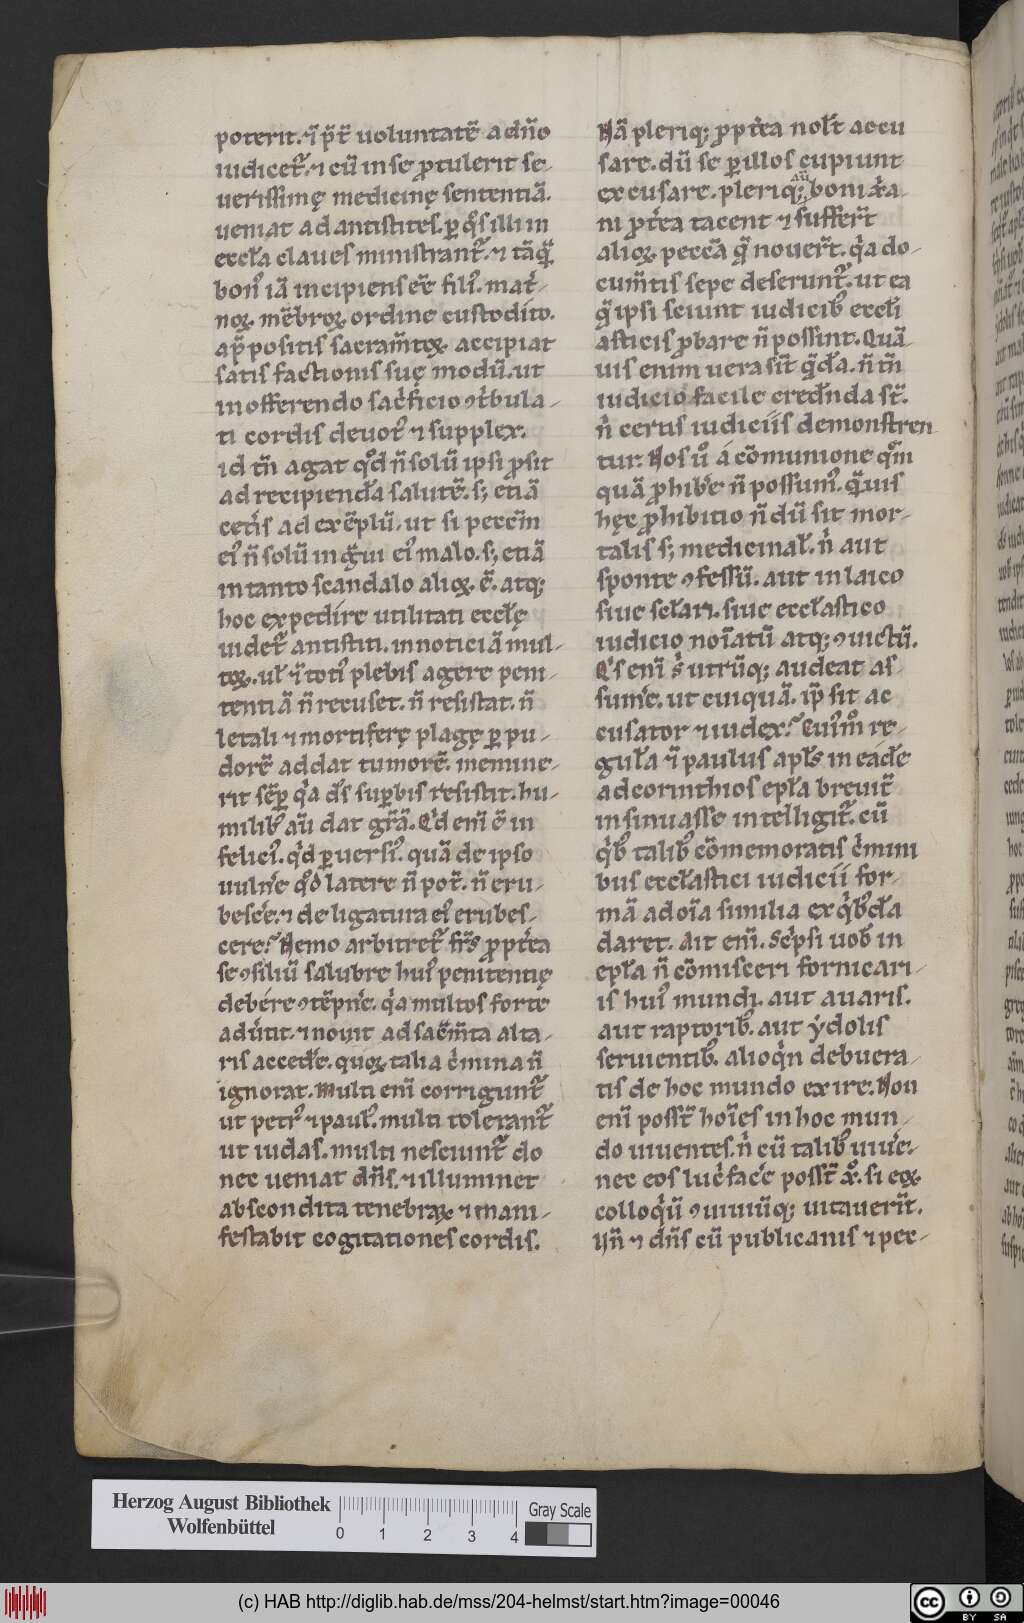 poterit. ⁊ i p̄t̄ uoluntatē a dn̄o
iudicet᷑. ⁊ cū in se ꝓtulerit se-
uerissimę medicinę sententiā.
ueniat ad antistites. ꝑ qͦs illi in
eccl̄a claues ministrant᷑. ⁊ tāqͣ̄
bon᷒ iā incipiens eē̄ fili᷒. mat̓-
noꝝ. mēbroꝝ ordine custodito.
a p̄positis sacram̄toꝝ accipiat
satisfactionis suę modū. ut
in offerendo sac̓ficio ꝯt̓bula-
ti cordis deuot᷒ ⁊ supplex.
id tn̄ agat qͦd n̄ solū ipsi ꝓsit
ad recipiendā salutē. s; etiā
cet̓is ad exēplū. ut si pecc̄m
ei᷒ n̄ solū in gͣui ei᷒ malo. s; etiā
in tanto scandalo alioꝝ. ē. atq;
hoc expedire utilitati eccl̄ę
uidet᷑ antistiti. in noticiā mul-
toꝝ. ul̄ ⁊i toti᷒ plebis agere peni-
tentiā n̄ recuset. n̄ resistat. n̄
letali ⁊ mortiferę plagę ꝑ pu-
dorē addat tumorē. memine-
rit sēꝑ qͥa ds̄ suꝑbis resistit. hu-
milib᷒ aū dat gr̄ā. Qͥd eni̅ ē in
felici᷒. qͥd ꝑuersi᷒. quā de ipso
uuln̓e qͦd latere n̄ pot̄. n̄ eru-
besc̓e. ⁊ de ligatura ei᷒ erubes-
cere? Nemo arbitret᷑ fr̄s ꝓpt̓ea
se ꝯsiliū salubre hui᷒ penitentię
debere ꝯtēpn̓e. qͥa multos forte
aduͥtit. ⁊ nouit ad sacͣm̄ta alta-
ris acced̓e. quoꝝ talia c̓mina n̄
ignorat. Multi eni̅ corrigunt᷑
ut petr᷒ ⁊ paul᷒. multi tolerant᷑
ut iudas. multi nesciunt᷑ do
nec ueniat dn̄s. ⁊ illuminet
abscondita tenebraꝝ ⁊ mani-
festabit cogitationes cordis.
Nā pleriq; ꝓpt̓ea nol̄t accu
sare. dū se ꝑ illos cupiunt
excusare. pleriq; aū boni xͥa
ni ꝓt̓ea tacent ⁊ suffer̄t
alioꝝ peccā qͣ̄ nouer̄t. qͥa do-
cum̄tis sepe deserunt᷑. ut ea
qͣ̄ ipsi sciunt iudicib᷒ eccl̄i
asticis ꝓbare n̄ possint. Quā
uis enim uera sīt qͣ̄dā. n̄ tn̄
iudicio facile cred̓nda st̄.
nͥ certis iudiciis demonstren
tur. Nos uͦ á cōmunione qͦm
quā ꝓhib̓e n̄ possum᷒. qͣ̄uis
hęc ꝓhibitio n̄dū sit mor-
talis s; medicinal̄. nͥ aut
sponte ꝯfessū. aut in laico
siue scl̄ari. siue eccl̄astico
iudicio noīatū atq; ꝯuictū.
Qͥs eni̅ sͥ utrūq; audeat as-
sum̓e. ut cuiquā. ip̄ sit ac
cusator ⁊ iudex? Cui᷒mͦ re-
gula ⁊i paulus apl̄s in eád̄e
ad corinthios epl̄a breuit̄
insinuasse intelligit᷑. cū
qͥb᷒ talib᷒ cōmemoratis c̓mini
bus eccl̄astici iudicii for-
mā ad oīa similia ex qͥb᷒dā
daret. Ait eni̅. Sc̓psi uob̄ in
epl̄a n̄ cōmisceri fornicari-
is hui᷒ mundi. aut auaris.
aut raptorib᷒. aut ẏdolis
seruientib᷒. alioqͥn debuera-
tis de hoc mundo exire. Non
eni̅ possēt hoīes in hoc mun-
do uiuentes. nͥ cū talib᷒ uiu̓e.
nec eos luc̓fac̓e possēt xͦ. si eoꝝ
colloqͥū ꝯuiuiūq; uitauer̄t.
Un̄ ⁊ dn̄s cū publicanis ⁊ pec-
Herzog August Bibliothek
Wolfenbüttel
0 1 2 3 4
Gray Scale
(c) HAB http://diglib.hab.de/mss/204-helmst/start.htm?image=00046
cc BY SA